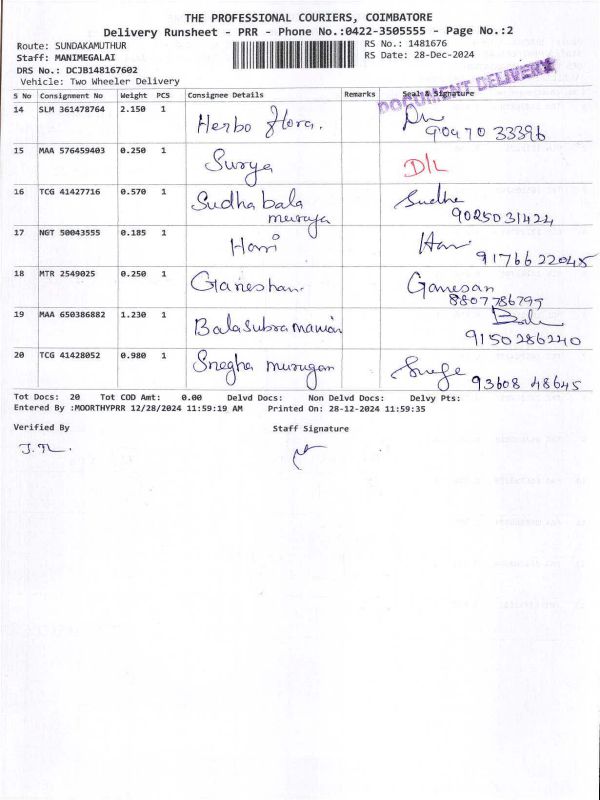 THE PROFESSIONAL COURIERS, COIMBATORE
Delivery Runsheet - PRR - Phone No.:0422-3505555 - Page No.:2
Route: SUNDAKAMUTHUR
RS No.: 1481676
Staff: MANIMEGALAI
RS Date: 28-Dec-2024
DRS No.: DCJB148167602
Vehicle: Two Wheeler Delivery
DOCUMENT DELIVERY
S No Consignment No Weight PCS Consignee Details Remarks Seal & Signature
14 SLM 361478764 2.150 1 Herbo Flora.
90470 33396
15 MAA 576459403 0.250 1 Surya D/L
16 TCG 41427716 0.570 1 Sudha bala Sudha
muraga 9025031424
17 NGT 50043555 0.185 1 Hari Hari
9176622045
18 MTR 2549025 0.250 1 Ganeshan. Ganesan
8807786799
19 MAA 650386882 1.230 1 Balasubramanian Bala
9150286240
20 TCG 41428052 0.980 1 Snegha murugan
93608 48645
Tot Docs: 20 Tot COD Amt: 0.00 Delvd Docs: Non Delvd Docs: Delvy Pts:
Entered By :MOORTHYPRR 12/28/2024 11:59:19 AM Printed On: 28-12-2024 11:59:35
Verified By Staff Signature